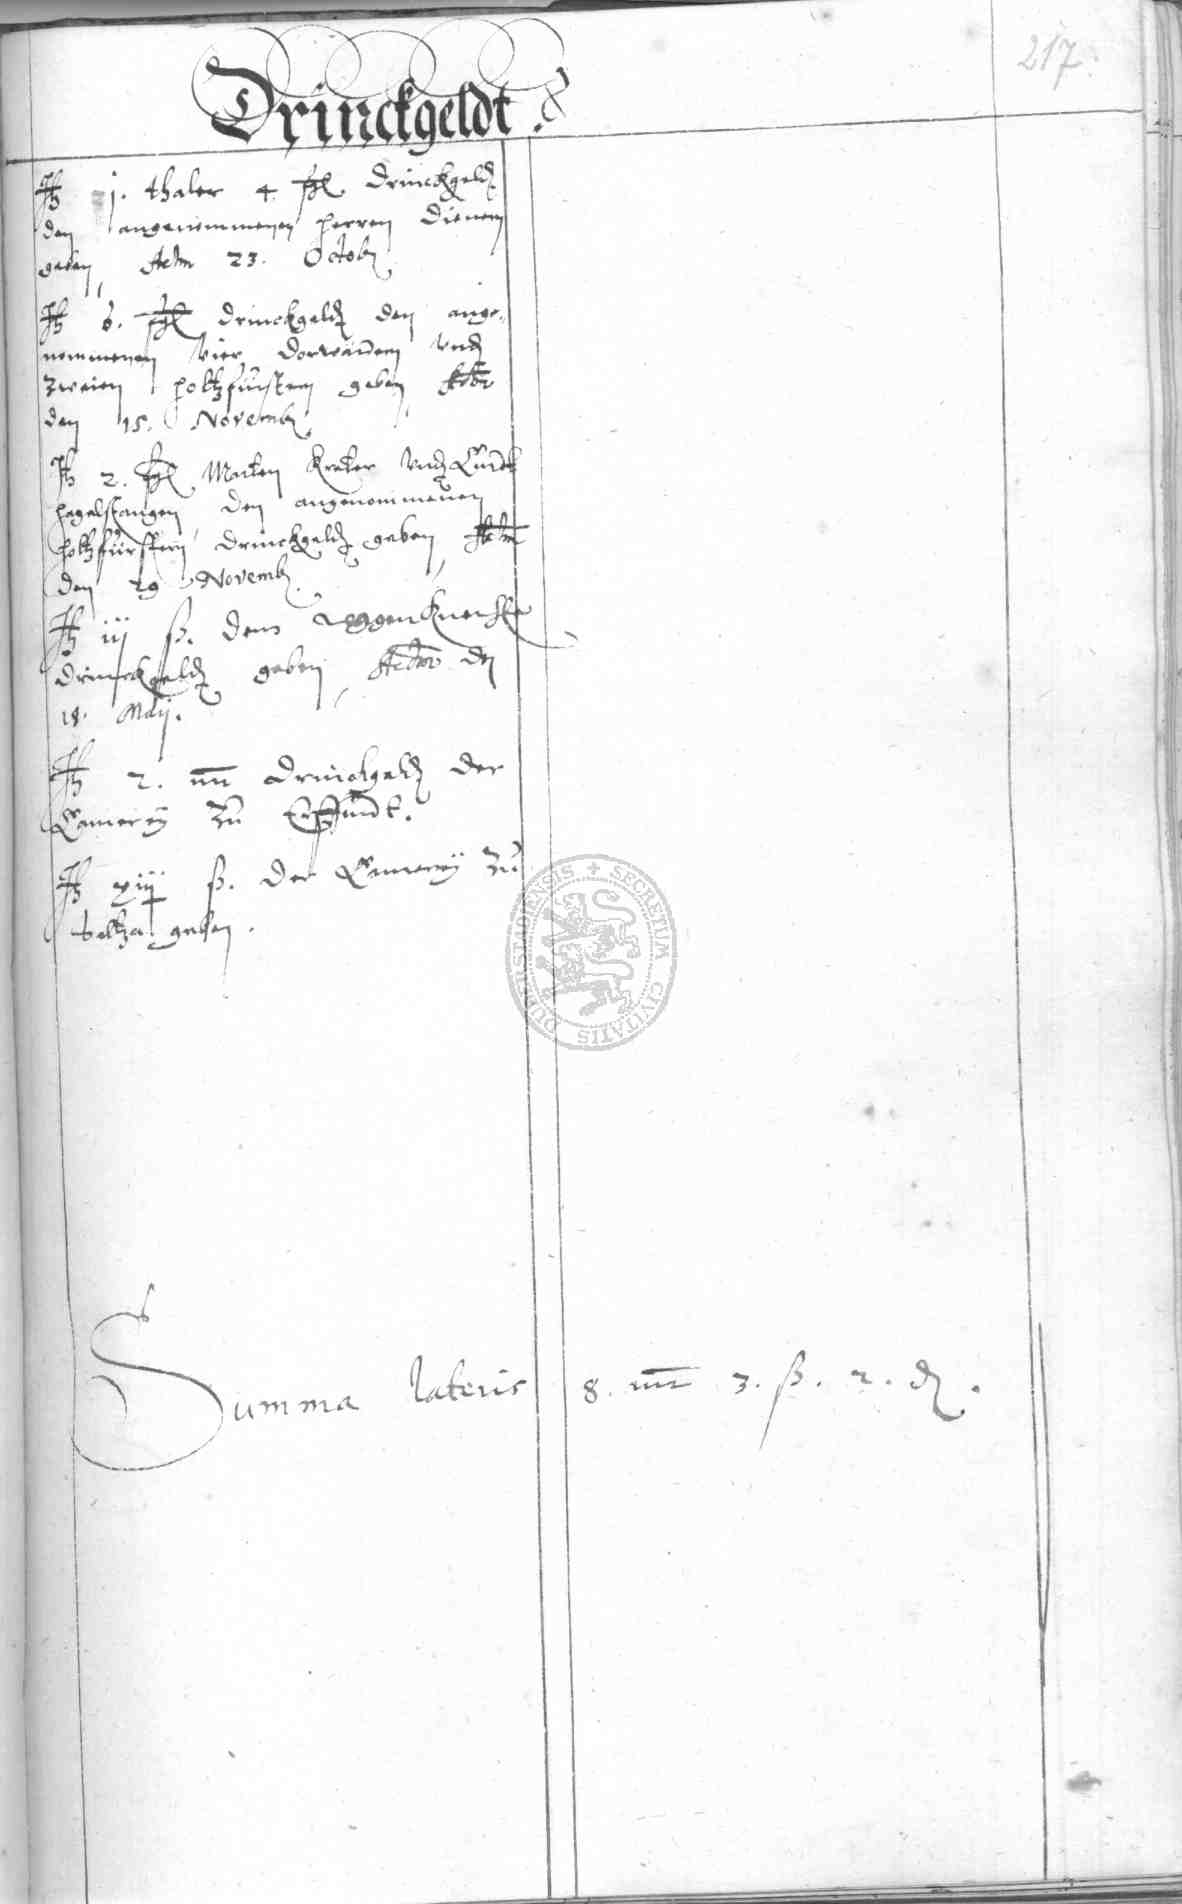 217.
Drinckgeldt.
It 1. thaler 4. ßgl drinckgeldt
den angenommenen herren dienern
geben, Actum 23. Octob
It 6. ßgl drinckgeldt den ange-
nommenen vier dorwardern vnd
zweien holtzfürstern geben
den 15. Novemb
It 2. ßgl Merten vnd Curdt
hagelstangen, den angenommenen
holtzfürstern drinckgeldt geben, Actum
den 29 Novemb.
It iij ß. dem
drinckgeldt geben, den
18. Maij.
It 2. mr drinckgeldt der
Camerey zu Erffurdt.
It ß. der Camerey zu
Saltza geben.
SECRETUM CIVITATIS DUDERSTADIENSIS
Summa lateris 8. mr 3. ß. 2. d.